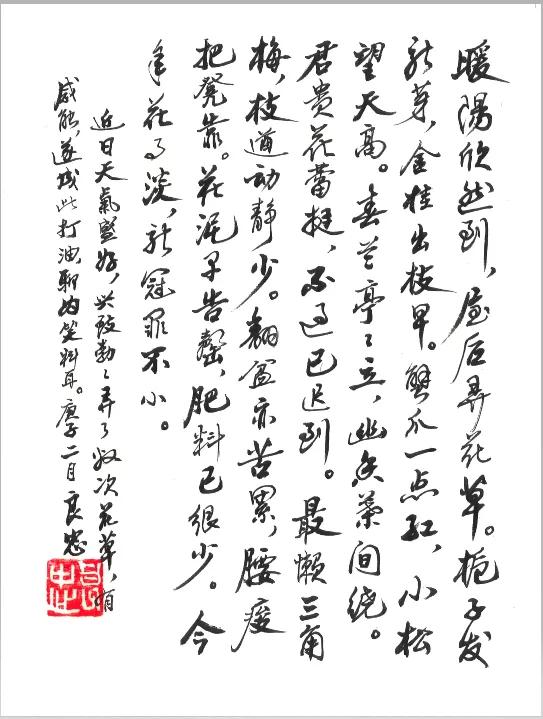 暖阳欣然到,屋后弄花草。栀子发
新芽,金桂出枝早。蟹爪一点红,小松
望天高。春兰亭亭立,幽香叶间绕。
君贵花蕾挺,不过已迟到。最懒三角
梅,枝道动静少。翻盆亦苦累,腰痠
把凳靠。花泥早告罄,肥料已很少。今
年花了淡,新冠罪不小。
近日天氣盛好,兴致勃勃弄了数次花草,有
感触,遂成此打油,聊为笑料耳。庚子二月良忠